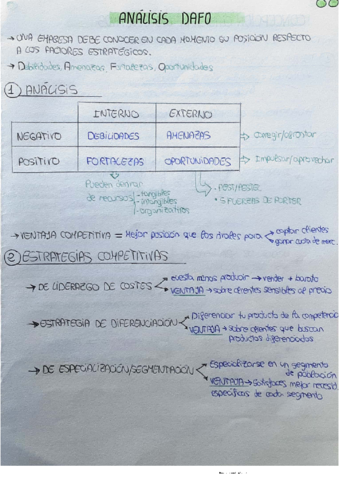 ANÁLISIS DAFO
→ UNA EMPRESA DEBE CONOCER EN CADA MOMENTO SU POSICIÓN RESPECTO
A LOS FACTORES ESTRATÉGICOS.
→ Debilidades, Amenazas, Fortalezas, Oportunidades
① ANÁLISIS
INTERNO EXTERNO
NEGATIVO DEBILIDADES AMENAZAS → Corregir/afrontar
POSITIVO FORTALEZAS OPORTUNIDADES → Impulsar/aprovechar
Pueden derivar
de recursos - tangibles
- intangibles
- organizativos
- PEST/PESTEL
- 5 FUERZAS DE PORTER
→ VENTAJA COMPETITIVA = Mejor posición que los rivales para captar clientes
ganar cuota de merc.
② ESTRATEGIAS COMPETITIVAS
→ DE LIDERAZGO DE COSTES cuesta menos producir → vender + barato
VENTAJA → sobre clientes sensibles al precio
→ ESTRATEGIA DE DIFERENCIACIÓN Diferenciar tu producto de la competencia
VENTAJA → sobre clientes que buscan
productos diferenciados
→ DE ESPECIALIZACIÓN/SEGMENTACIÓN Especializarse en un segmento
de población
VENTAJA → satisfaces mejor necesid.
específicas de cada segmento